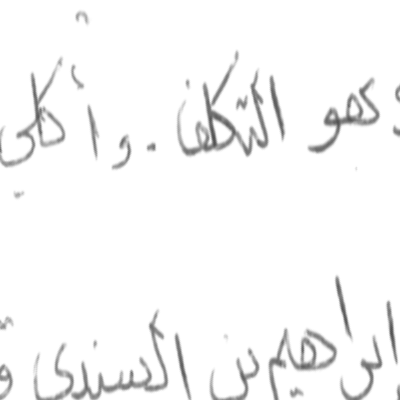 وهو التكلف . وأكلي
إبراهيم بن السندي